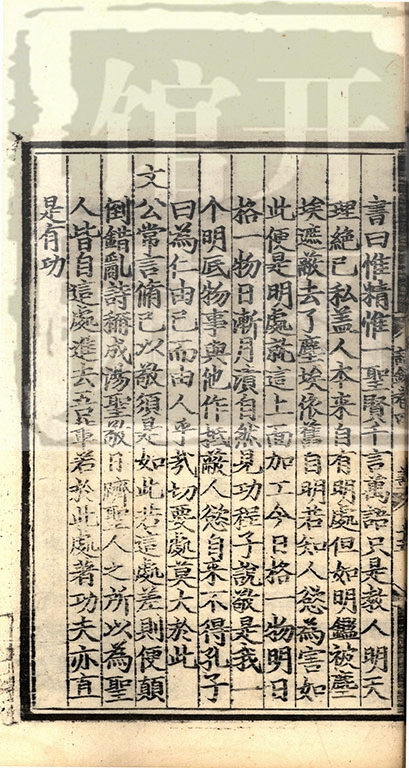 書曰惟精惟一聖賢千言萬語只是教人明天
理絶己私盖人本来自有明處但如明鑑被塵
埃遮蔽去了塵埃依舊自明若知人慾為害如
此便是明處就這上面加工今日格一物明日
格一物日漸月漬自然見功程子說敬是我一
个明底物事與他作抵敵人慾自来不得孔子
曰為仁由己而由人乎㢤切要處莫大於此
文公常言脩己以敬須是如此若這處差則便顛
倒錯亂詩稱成湯聖敬日躋聖人之所以為聖
人皆自這處進去吾軰若於此處著功夫亦直
是有功
开馆